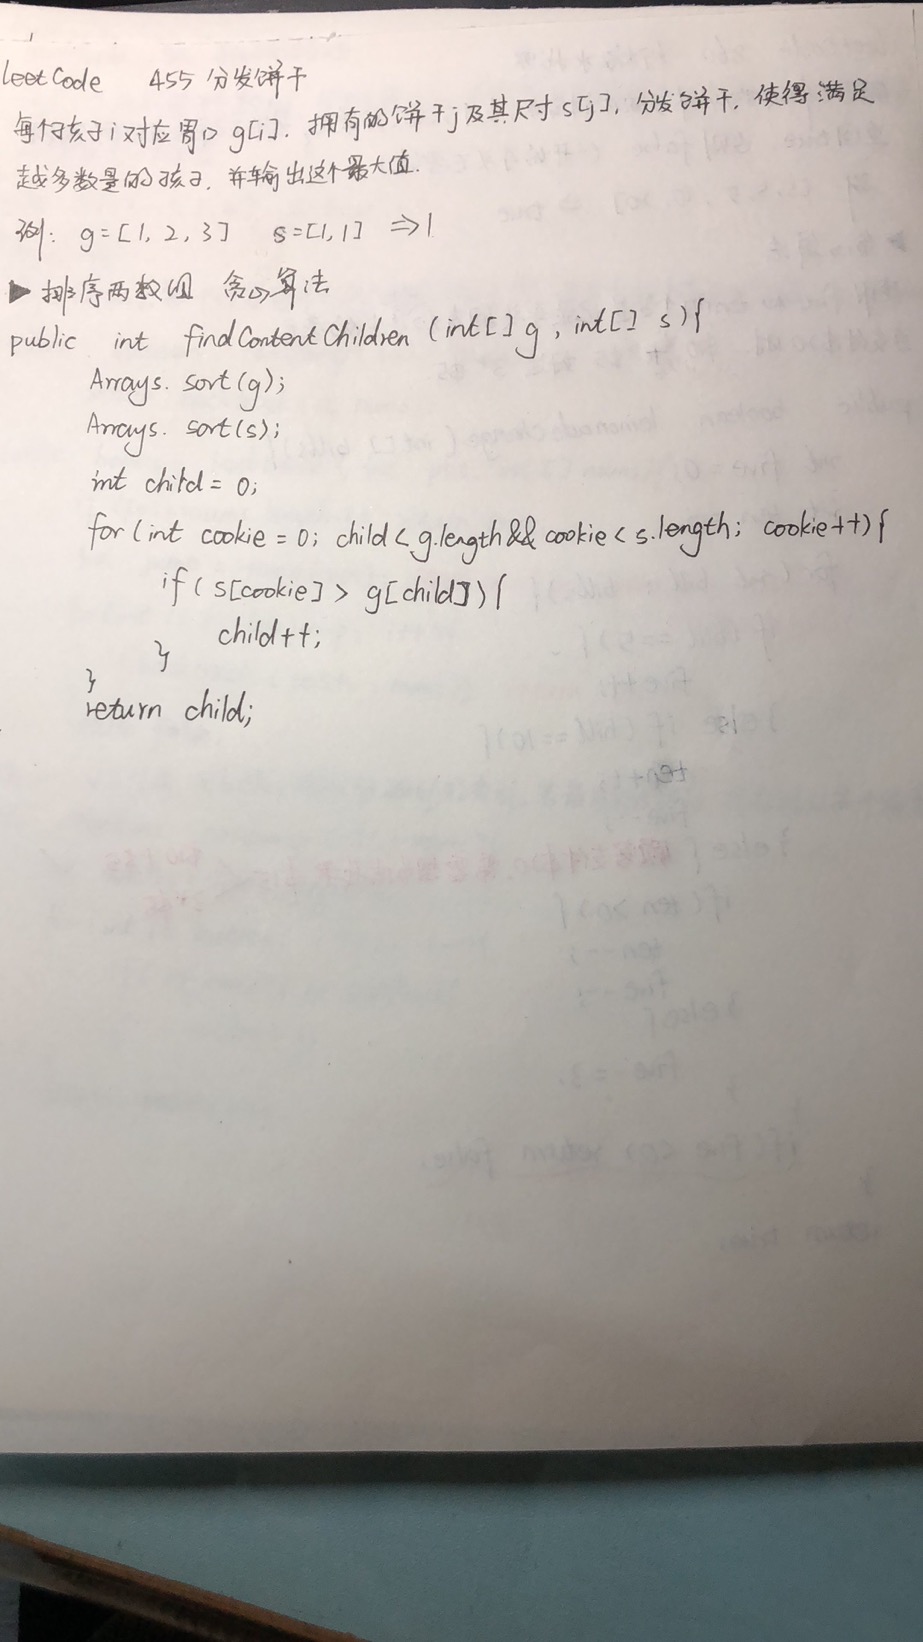 leetCode 455 分发饼干
每个孩子i对应胃口 g[i]. 拥有的饼干j及其尺寸 s[j], 分发饼干, 使得满足
越多数量的孩子, 并输出这个最大值.
例: g=[1, 2, 3] s=[1,1] ⇒1
▶ 排序两数组 贪心算法
public int findContentChildren (int[] g, int[] s){
Arrays. sort(g);
Arrays. sort(s);
int child = 0;
for (int cookie = 0; child < g.length && cookie < s.length; cookie++){
if ( s[cookie] > g[child]){
child++;
}
}
return child;